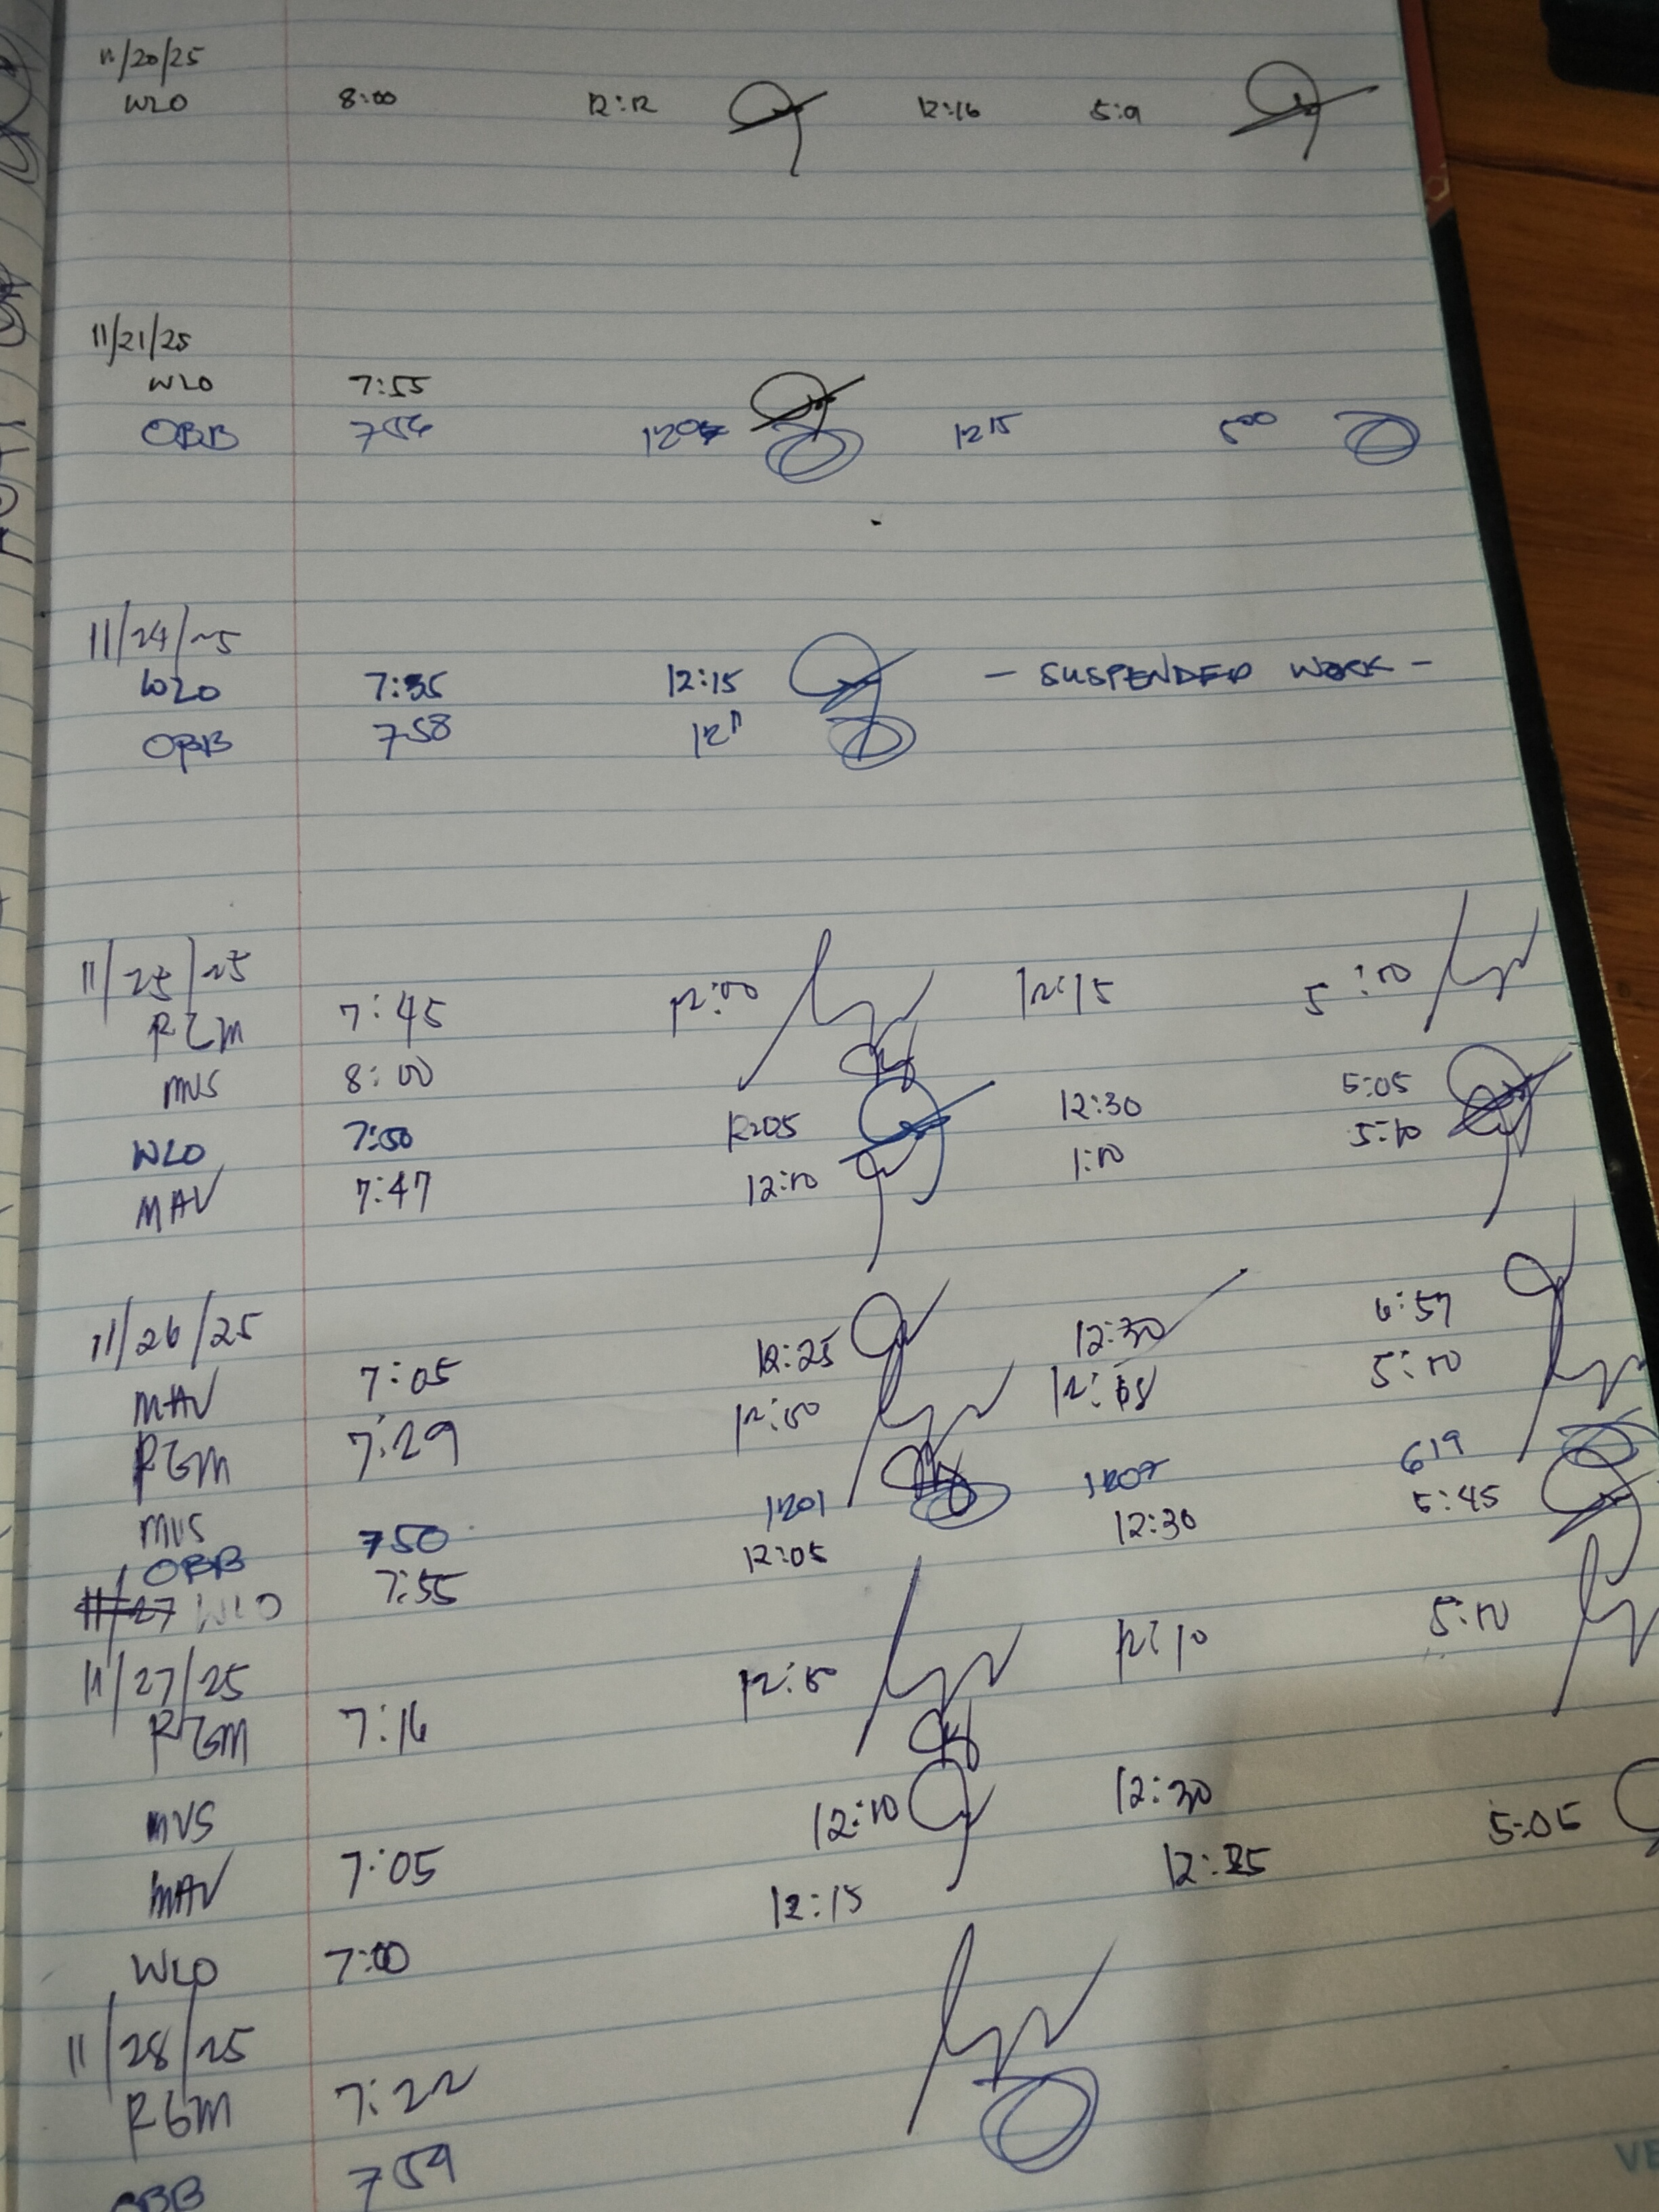 11/20/25
WLO 8:00 12:12 12:16 5:9
11/21/25
WLO 7:55
OBB 756 12 1215 500
11/24/25
WLO 7:35 12:15 - SUSPENDED WORK -
OBB 758 1211
11/25/25
RGM 7:45 12:00 12:15 5:10
MVS 8:00
WLO 7:50 12:05 12:30 5:05
MAV 7:47 12:10 1:10 5:10
11/26/25
MAV 7:05 12:25 12:30 6:57
RGM 7:29 12:10 5:10
MVS
OBB 750 1201 1207 619
11/27 WLO 7:55 12:05 12:30 5:45
11/27/25
RGM 7:16 12:10 5:10
MVS
MAV 7:05 12:10 12:30
WLO 7:00 12:15 12:25 5:05
11/28/25
RGM 7:22
OBB 759
VE